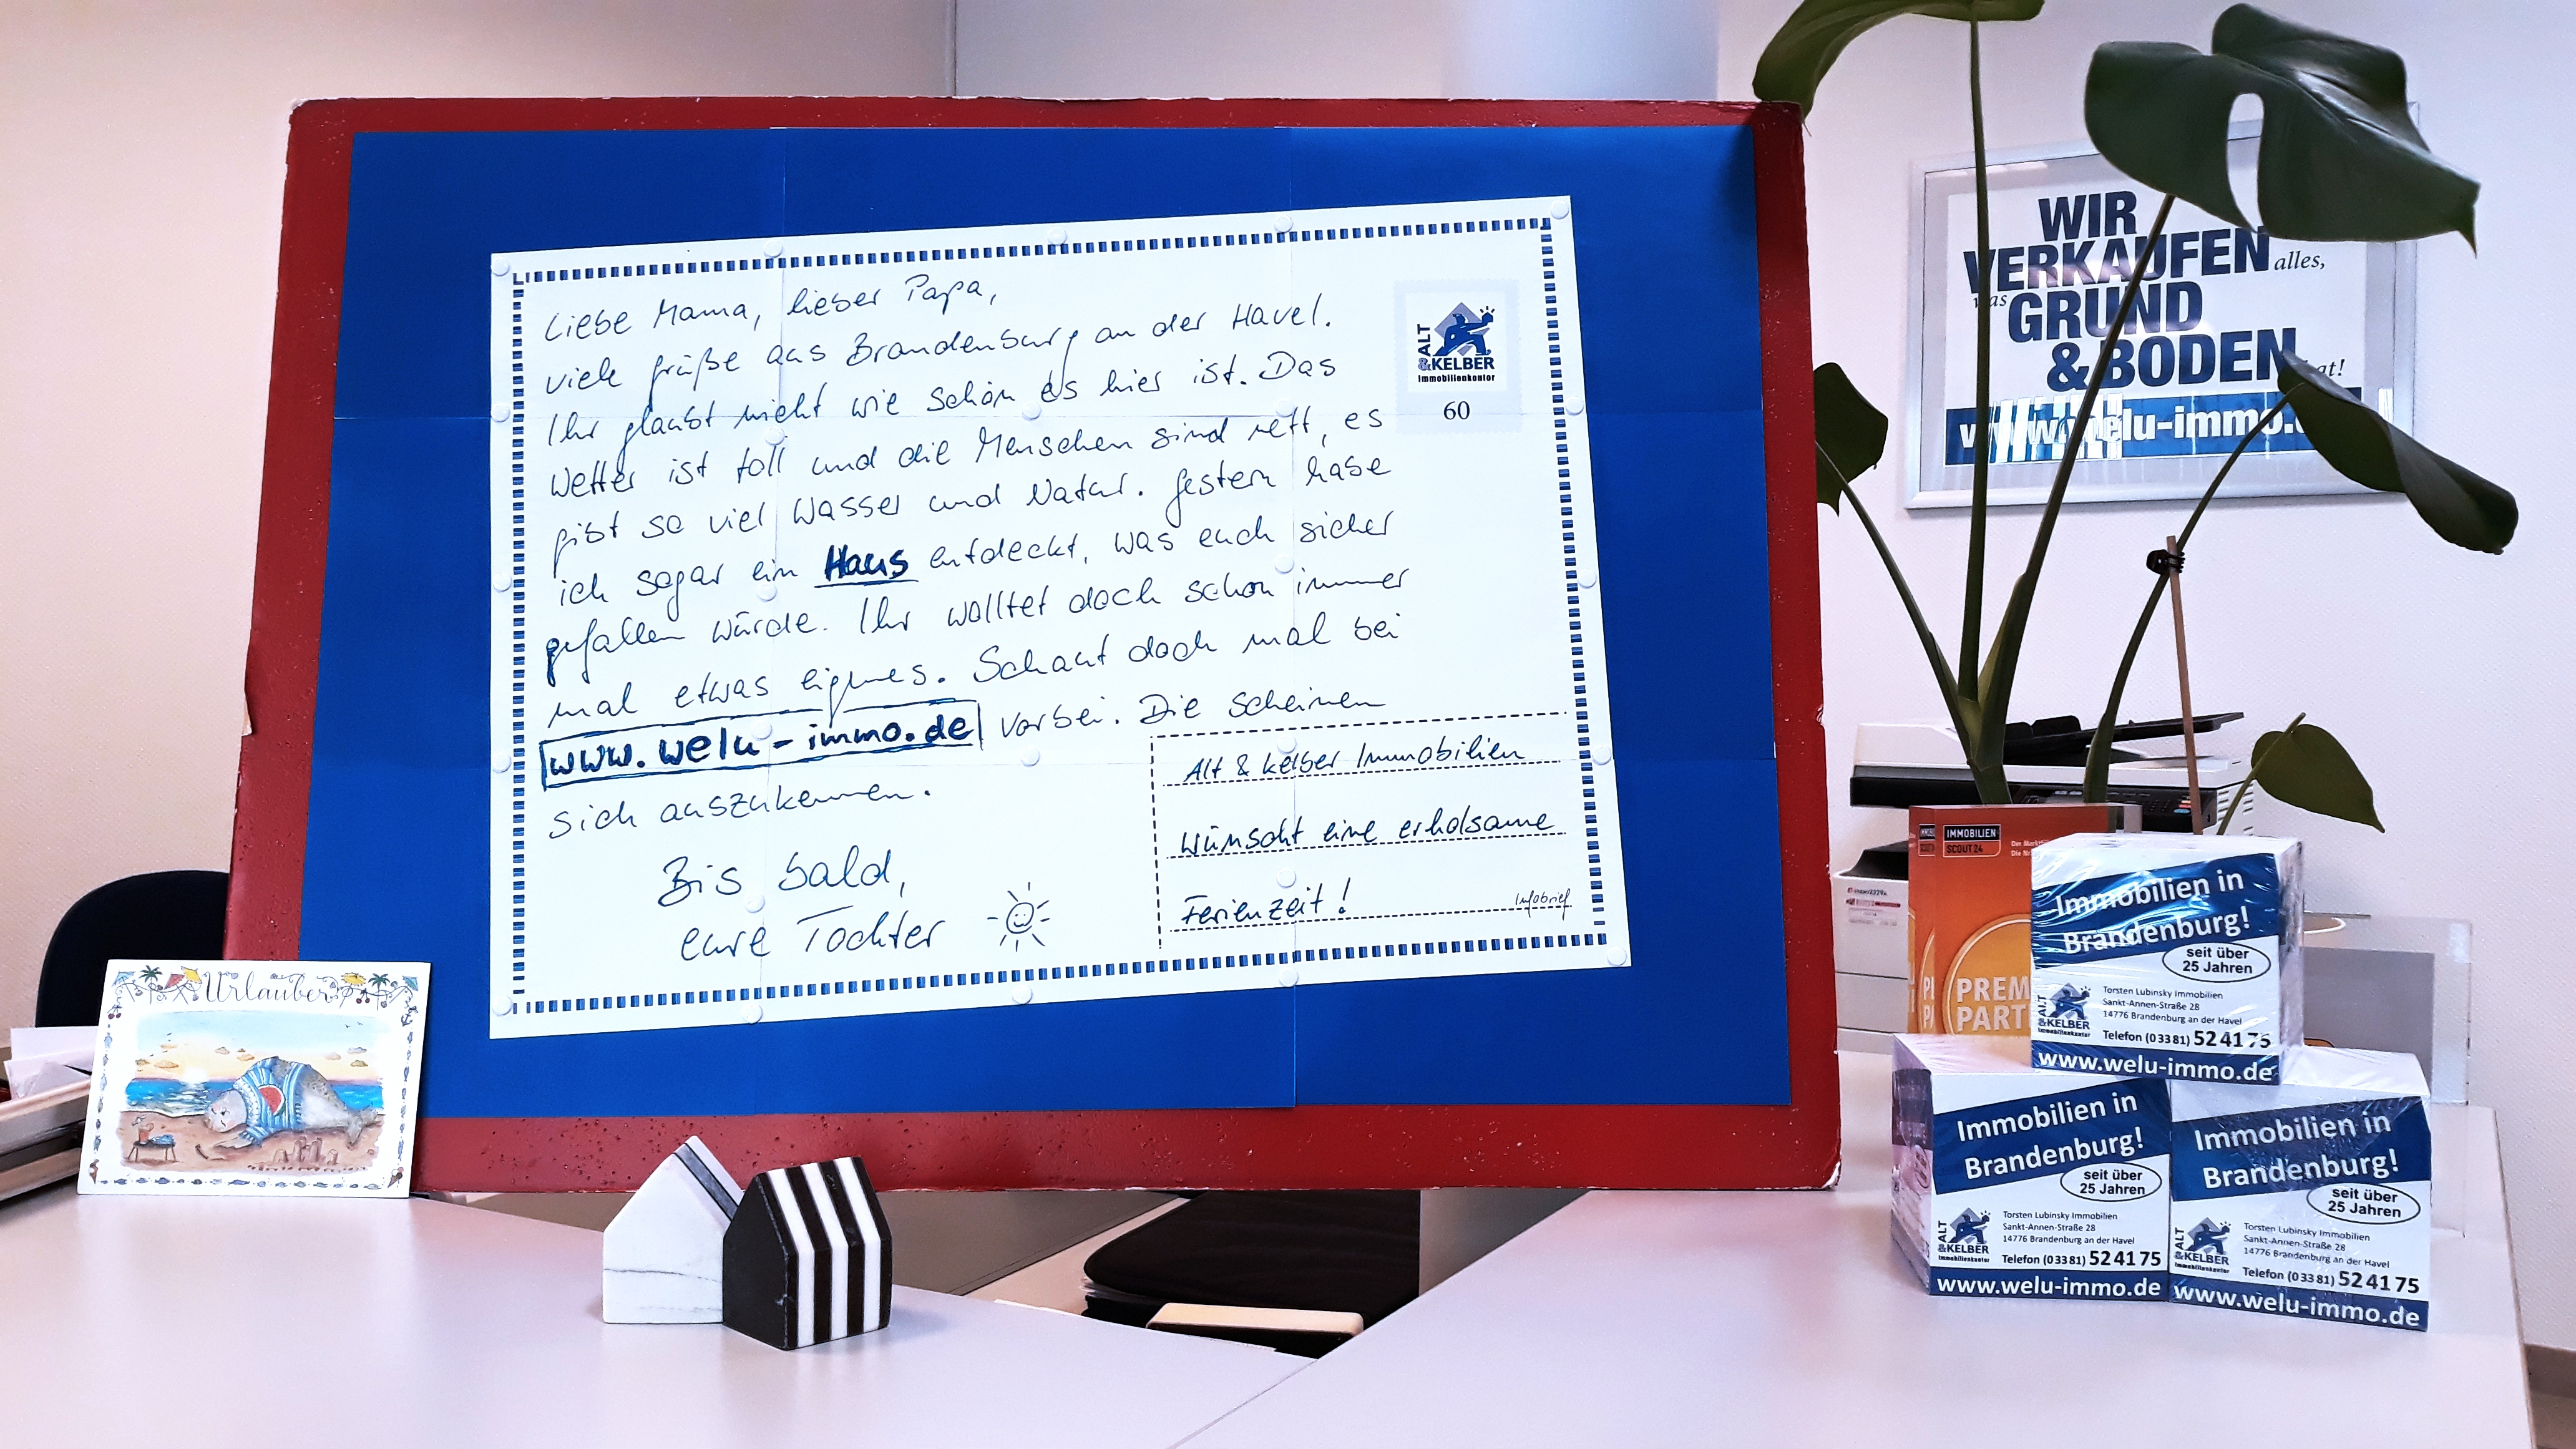 Liebe Mama, lieber Papa,
viele Grüße aus Brandenburg an der Havel.
Ihr glaubt nicht wie schön es hier ist. Das
Wetter ist toll und die Menschen sind nett, es
gibt so viel Wasser und Natur. Gestern habe
ich sogar ein Haus entdeckt, was euch sicher
gefallen würde. Ihr wolltet doch schon immer
mal etwas eignes. Schaut doch mal bei
www.welu-immo.de vorbei. Die scheinen
sich auszukennen.
Bis bald,
eure Tochter
ALT
&KELBER
Immobilienkontor
60
Alt & Kelber Immobilien
wünscht eine erholsame
Ferienzeit!
Infobrief
Urlauber
WIR
VERKAUFEN alles,
was GRUND
& BODEN hat!
www.welu-immo.
IMMOBILIEN
SCOUT 24
PREM
PART
Immobilien in
Brandenburg!
seit über
25 Jahren
ALT
&KELBER
Immobilienkontor
Torsten Lubinsky Immobilien
Sankt-Annen-Straße 28
14776 Brandenburg an der Havel
Telefon (0 33 81) 52 41 75
www.welu-immo.de
Immobilien in
Brandenburg!
seit über
25 Jahren
ALT
&KELBER
Immobilienkontor
Torsten Lubinsky Immobilien
Sankt-Annen-Straße 28
14776 Brandenburg an der Havel
Telefon (0 33 81) 52 41 75
www.welu-immo.de
Immobilien in
Brandenburg!
seit über
25 Jahren
ALT
&KELBER
Immobilienkontor
Torsten Lubinsky Immobilien
Sankt-Annen-Straße 28
14776 Brandenburg an der Havel
Telefon (0 33 81) 52 41 75
www.welu-immo.de